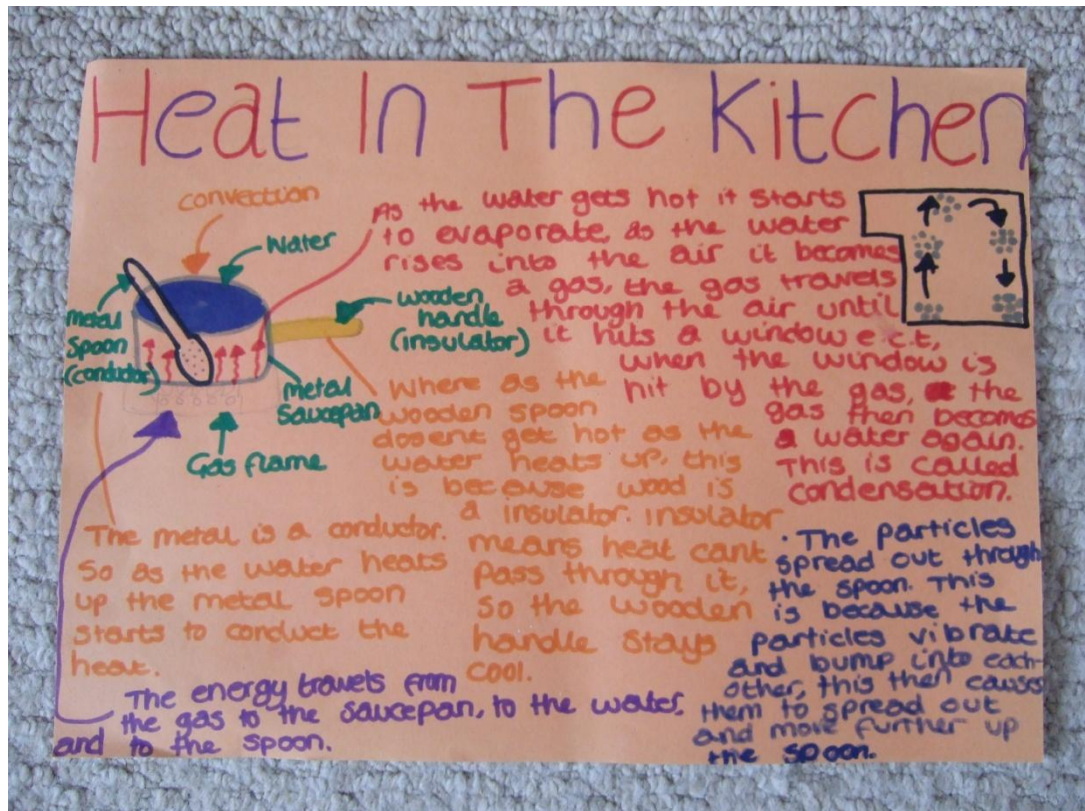 Heat In The Kitchen
convection
Water
Metal
Spoon
(conductor)
wooden
handle
(insulator)
metal
Saucepan
Gas flame
As the water gets hot it starts
to evaporate, as the water
rises into the air it becomes
a gas, the gas travels
through the air until
it hits a window e.c.t,
when the window is
hit by the gas, the
gas then becomes
a water again.
This is called
condensation.
Where as the
wooden spoon
dosent get hot as the
water heats up. this
is because wood is
a insulator. insulator
means heat cant
pass through it,
so the wooden
handle stays
cool.
The metal is a conductor.
So as the water heats
up the metal spoon
starts to conduct the
heat.
· The particles
spread out through
the spoon. This
is because the
particles vibrate
and bump into each-
other, this then causes
them to spread out
and move further up
the spoon.
The energy travels from
the gas to the saucepan, to the water,
and to the spoon.